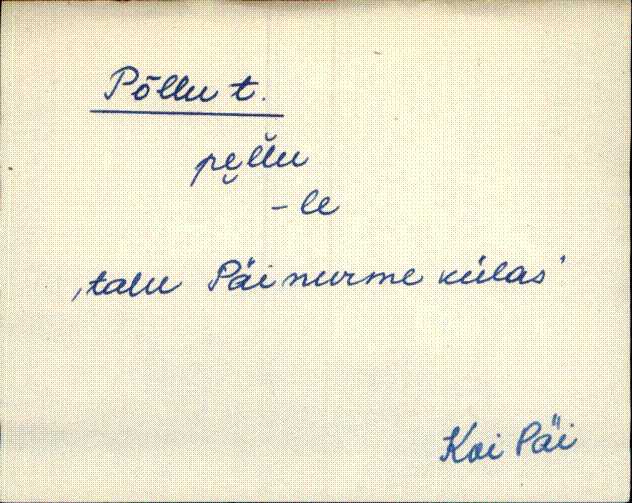 Põllu t.
pe̮l̆lu
-le
‚talu Päinurme külas’
Koi Päi